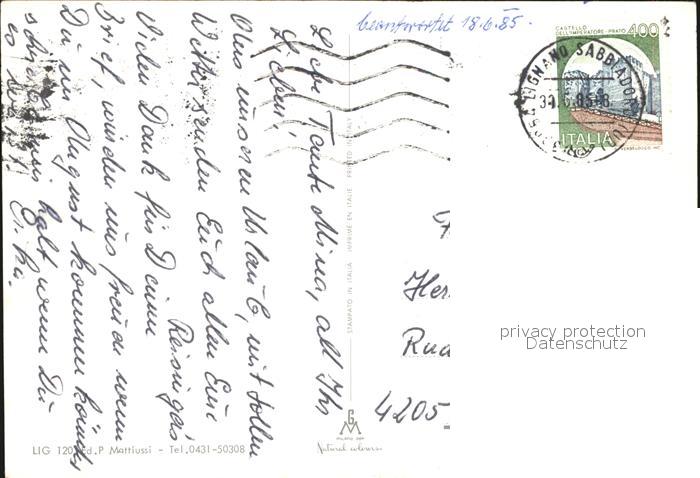 beantwortet 18.6.85.
CASTELLO
DELL'IMPERATORE-PRATO
400
LIGNANO SABBIADORO
ITALIA
Liebe Tante Mina, all Ihr
Lieben!
Aus unseren Urlaub, mit tollen
Wetter senden Euch allen Eure
Vielen Dank für Deinen
Brief, würden uns freuen wenn
Du im August kommen könntest
schreib uns halt wenn Du
STAMPATO IN ITALIA IMPRIMÉ EN ITALIE PRINTED IN ITALY
Her
Rud
4205
privacy protection
Datenschutz
GM
MILANO
Natural colours
LIG 120 Ed.P Mattiussi - Tel.0431-50308